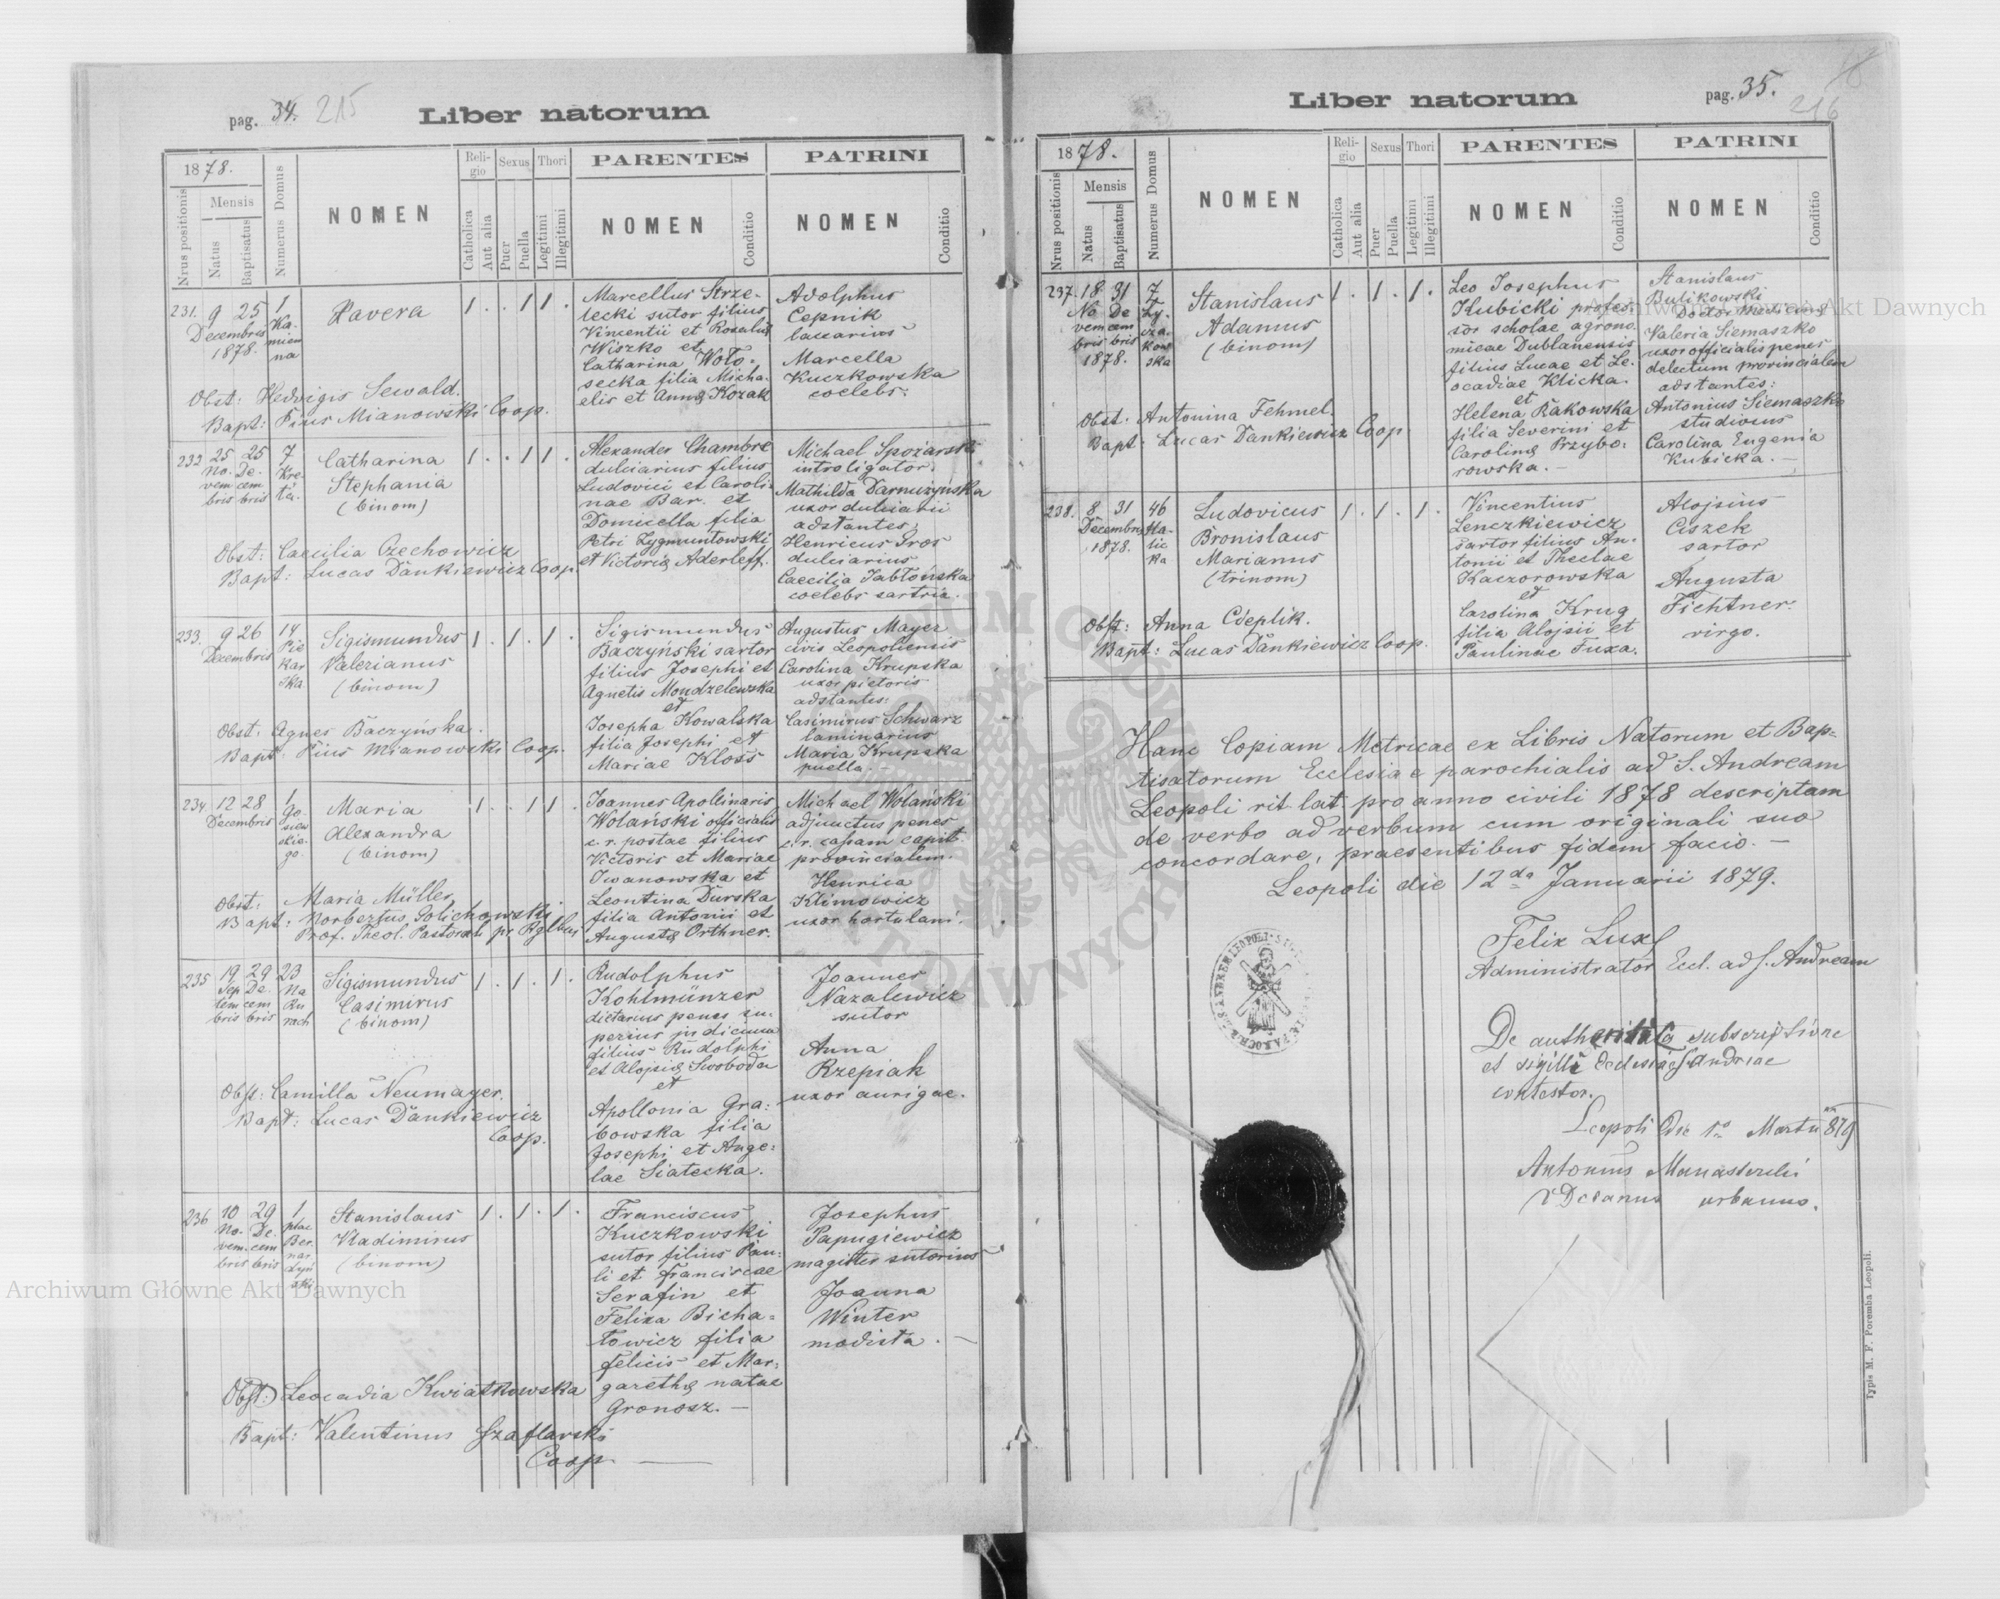 pag. 34. 215
Liber natorum
1878.
Nrus positionis
Mensis
Natus
Baptisatus
Numerus Domus
NOMEN
Religio
Catholica
Aut alia
Sexus
Puer
Puella
Thori
Legitimi
Illegitimi
PARENTES
NOMEN
Conditio
PATRINI
NOMEN
Conditio
231. 9 25 1
Decembris
1878.
Ka-
mien
na
Xavera
1 . . 1 1 .
Marcellus Strze-
lecki sutor filius
Vincentii et Rosaliae
Wiszko et
Catharina Woło-
secka filia Micha-
elis et Annae Kozak
Adolphus
Cepnik
laccarius
Marcella
Kuczkowska
coelebs.
Obst: Hedvigis Sewald.
Bapt: Pius Mianowski Coop.
232 25 25 7
No- De-
vem cem
bris bris
Kre-
ta.
Catharina
Stephania
(binom)
1 . . 1 1 .
Alexander Chambre
dulciarius filius
Ludovici et Caroli-
nae Bar. et
Domicella filia
Petri Zygmuntowski
et Victoriae Aderleff.
Michael Spożarski
introligator.
Mathilda Darnużyńska
uxor dulciarii
adstantes
Henricus Gros
dulciarius
Caecilia Jabłońska
coelebs sartria.
Obst: Caecilia Czechowicz
Bapt: Lucas Dankiewicz Coop.
233. 9 26 14
Decembris
Pie
kar
ska
Sigismundus
Valerianus
(binom)
1 . 1 . 1 .
Sigismundus
Baczyński sartor
filius Josephi et
Agnetis Mondzelewska
et
Josepha Kowalska
filia Josephi et
Mariae Kloss
Augustus Mayer
civis Leopoliensis
Carolina Krupska
uxor pictoris
adstantes:
Casimirus Schwarz
laminarius
Maria Krupska
puella.
Obst: Agnes Baczyńska.
Bapt: Pius Mianowski Coop.
234. 12 28 1
Decembris
Go-
siew
skie-
go.
Maria
Alexandra
(binom)
1 . . 1 1 .
Joannes Apollinaris
Wolański officialis
c. r. postae filius
Victoris et Mariae
Iwanowska et
Leontina Durska
filia Antonii et
Augustae Orthner.
Michael Wolański
adjunctus penes
c. r. cassam capit.
provincialem.
Henrica
Klimowicz
uxor hortulani.
Obst: Maria Müller
Bapt: Norbertus Golichowski
Prof. Theol. Pastoral
235 19 29 23
Sep De-
tem cem
bris bris
Na
Ru
rach
Sigismundus
Casimirus
(binom)
1 . 1 . 1 .
Rudolphus
Kohlmünzer
dietarius penes su-
perius judicium
filius Rudolphi
et Aloysiae Swoboda
et
Apollonia Gra-
bowska filia
Josephi et Ange-
lae Siatecka.
Joannes
Nazalewicz
sutor
Anna
Rzepiak
uxor aurigae.
Obst: Camilla Neumayer.
Bapt: Lucas Dankiewicz
Coop.
236 10 29 1
No- De-
vem- cem
bris bris
plac
Ber-
nar
dyń
ski
Stanislaus
Vladimirus
(binom)
1 . 1 . 1 .
Franciscus
Kuczkowski
sutor filius Pau-
li et Franciscae
Serafin et
Felixa Bicha-
towicz filia
Felicis et Mar-
garethae natae
Gronosz. —
Josephus
Papugiewicz
magister sutorius
Joanna
Winter
modista. —
Obst: Leocadia Kwiatkowska
Bapt: Valentinus Szaflarski
Coop. —
pag. 35.
216
Liber natorum
1878.
Nrus positionis
Mensis
Natus
Baptisatus
Numerus Domus
NOMEN
Religio
Catholica
Aut alia
Sexus
Puer
Puella
Thori
Legitimi
Illegitimi
PARENTES
NOMEN
Conditio
PATRINI
NOMEN
Conditio
237. 18 31 7
No De
vem cem
bris bris
1878.
Ły-
cza
kow
ska
Stanislaus
Adamus
(binom)
1 . 1 . 1 .
Leo Josephus
Kubicki profes-
sor scholae agrono-
micae Dublanensis
filius Lucae et Le-
ocadiae Klicka.
et
Helena Rakowska
filia Severini et
Carolinae Przybo-
rowska. —
Stanislaus
Bulikowski
Doctor Medicinae
Valeria Siemaszko
uxor officialis penes
delectum provincialem
adstantes:
Antonius Siemaszko
studiosus
Carolina Eugenia
Kubicka. —
Obst. Antonina Fehmel.
Bapt: Lucas Dankiewicz Coop
238. 8 31 46
Decembris
1878.
Ha-
lic
ka
Ludovicus
Bronislaus
Marianus
(trinom)
1 . 1 . 1 .
Vincentius
Lenczkiewicz
sartor filius An-
tonii et Theclae
Kaczorowska
et
Carolina Krug
filia Alojsii et
Paulinae Fuxa.
Alojsius
Ciszek
sartor
Augusta
Fichtner
virgo.
Obst: Anna Cieplik.
Bapt: Lucas Dankiewicz Coop.
Hanc Copiam Metricae ex Libris Natorum et Bap-
tisatorum Ecclesiae parochialis ad S. Andream
Leopoli rit lat pro anno civili 1878 descriptam
de verbo ad verbum cum originali suo
concordare, praesentibus fidem facio. —
Leopoli die 12da Januarii 1879.
Felix Lux
Administrator Eccl. ad S. Andream
De authentica subscriptione
et sigilli Ecclesiae S Andreae
contestor.
Leopoli die 1a Martii 879
Antonius Manasterski
VDecanus urbanus.
Typis M. F. Poremba Leopoli.
Archiwum Główne Akt Dawnych
Archiwum Główne Akt Dawnych